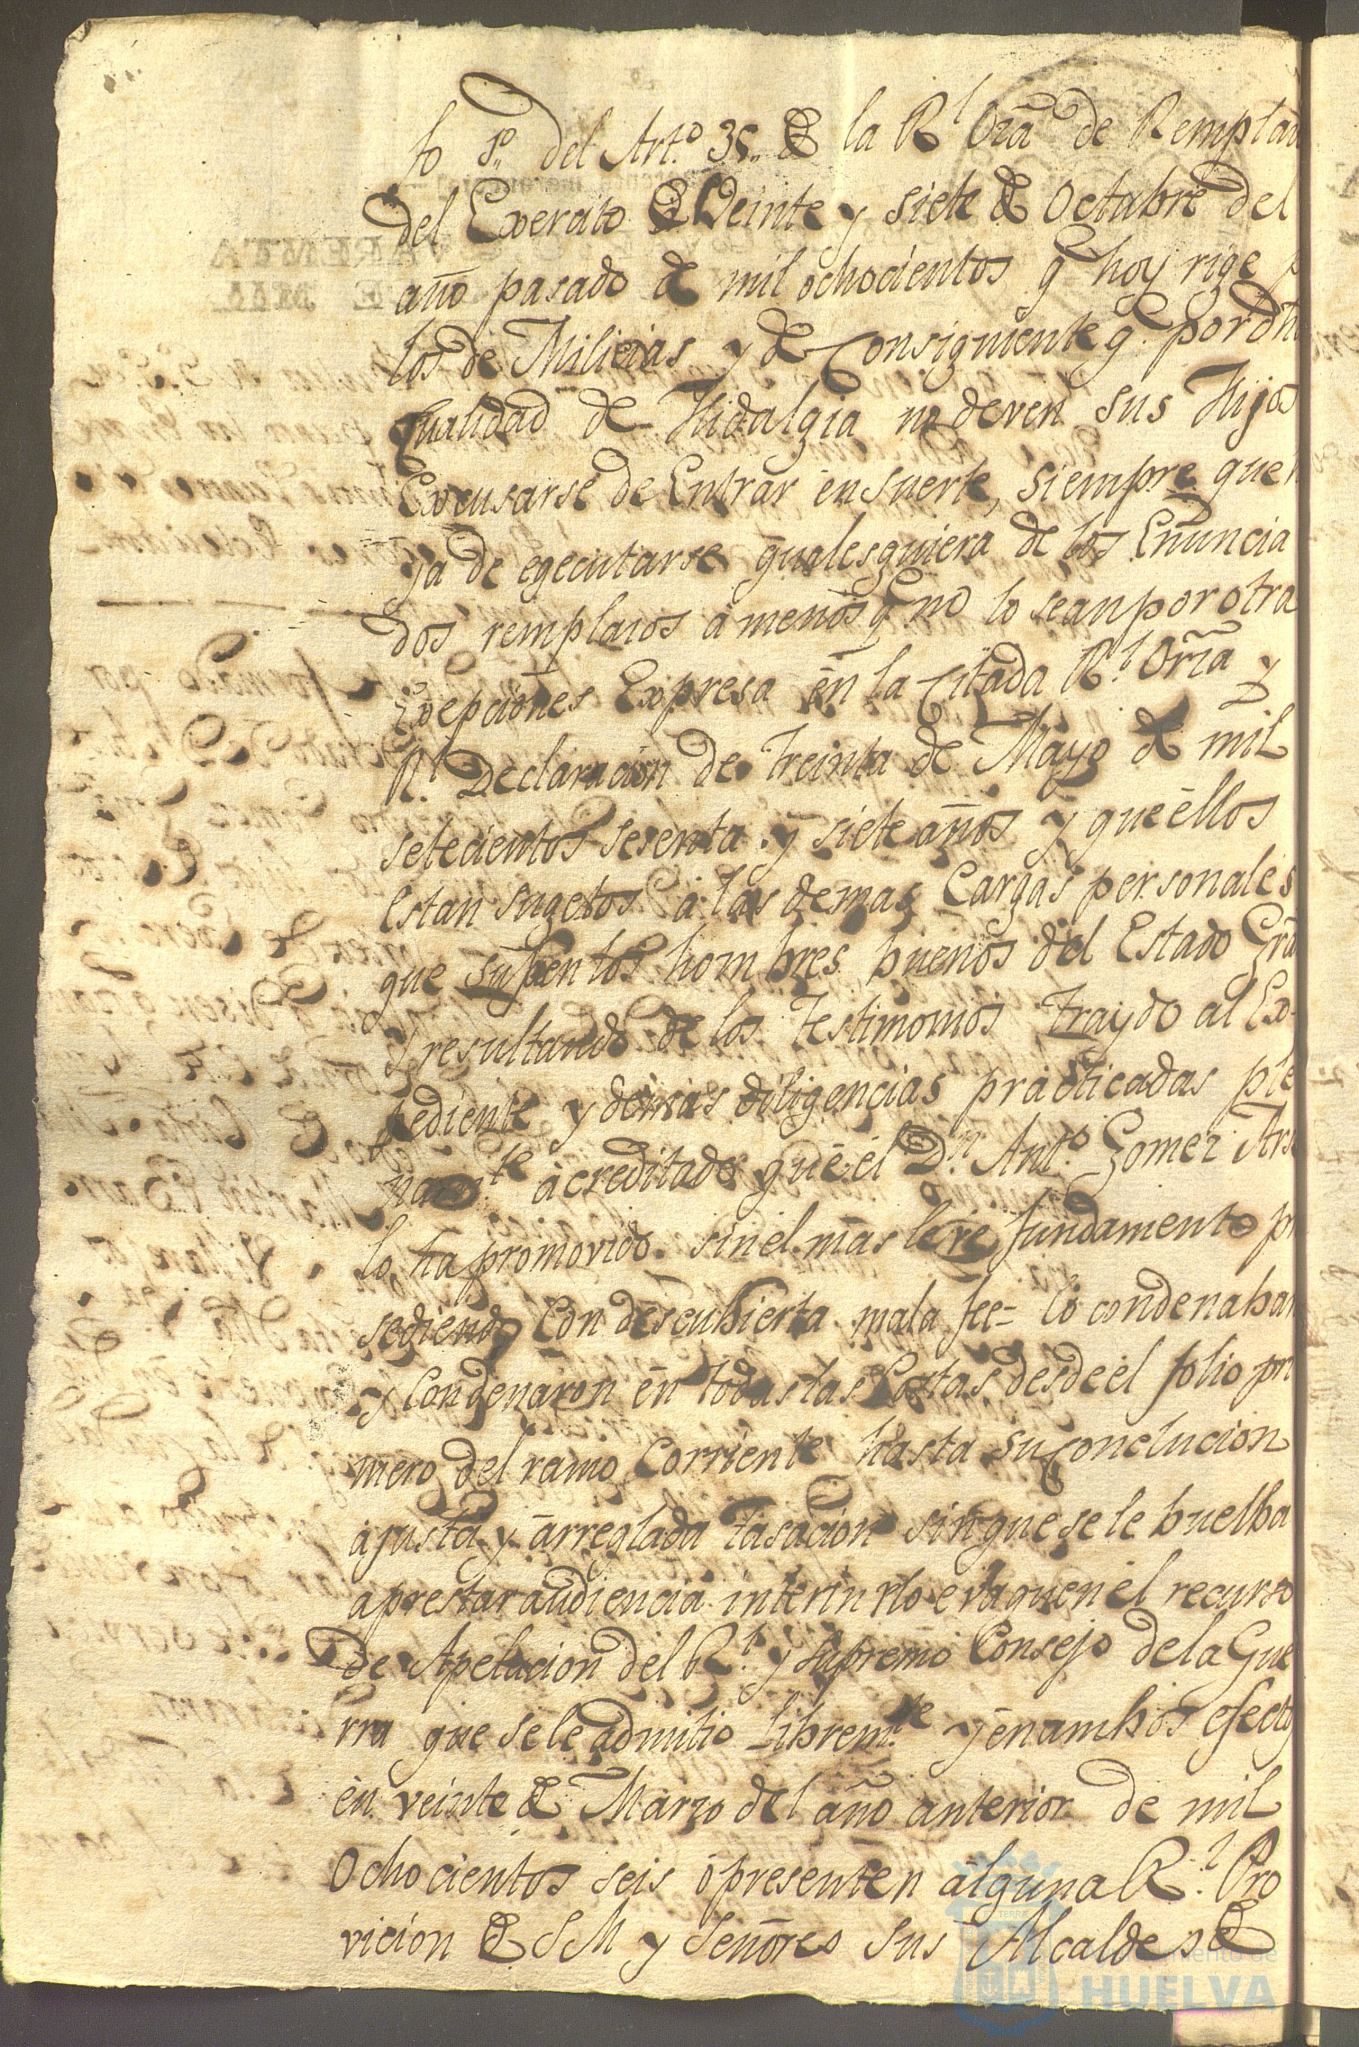 fo 8º del Artº 35,, de la Rl Orzã de Remplazo
del Exercito de Veinte y siete de Octubre del
año pasado de mil ochocientos q hoy rige p
los de Milicias y de Consiguiente q. por dha
qualidad de Hidalgia no deven sus Hijos
Excusarse de Entrar en suerte, siempre que h
ya de egecutarse qualesquiera de los Enuncia
dos remplazos a menos q no lo sean por otra
Exepciones Expresa en la Citada Rl Orzã y
Rl Declaracion de treinta de Mayo de mil
setecientos sesenta y siete años y que ellos
Estan sugetos a las demas Cargas personales
que sufren los hombres buenos del Estado Grãl
y resultando de los testimonios traydo al Ex-
pediente y demas diligencias practicadas ple
namte acreditado que el Dn Antº Gomez Ars
lo ha promovido sin el mas leve fundamento pr
sediendo Con descubierta mala fee = lo condenaban
y Condenaron en todas las Costas desde el folio pri
mero del ramo Corriente hasta su Conclucion
a justa y arreglada tasacion sin que se le buelba
a prestar audiencia interin no evaquen el recurso
de Apelacion del Rl y Supremo Consejo de la Gue
rra que se le admitio Libremte y en ambos efectos
en veinte de Marzo del año anterior de mil
Ochocientos seis o presenten alguna Rl Pro
vicion de S M y Señores sus Alcaldes de
Ayuntamiento de
HUELVA